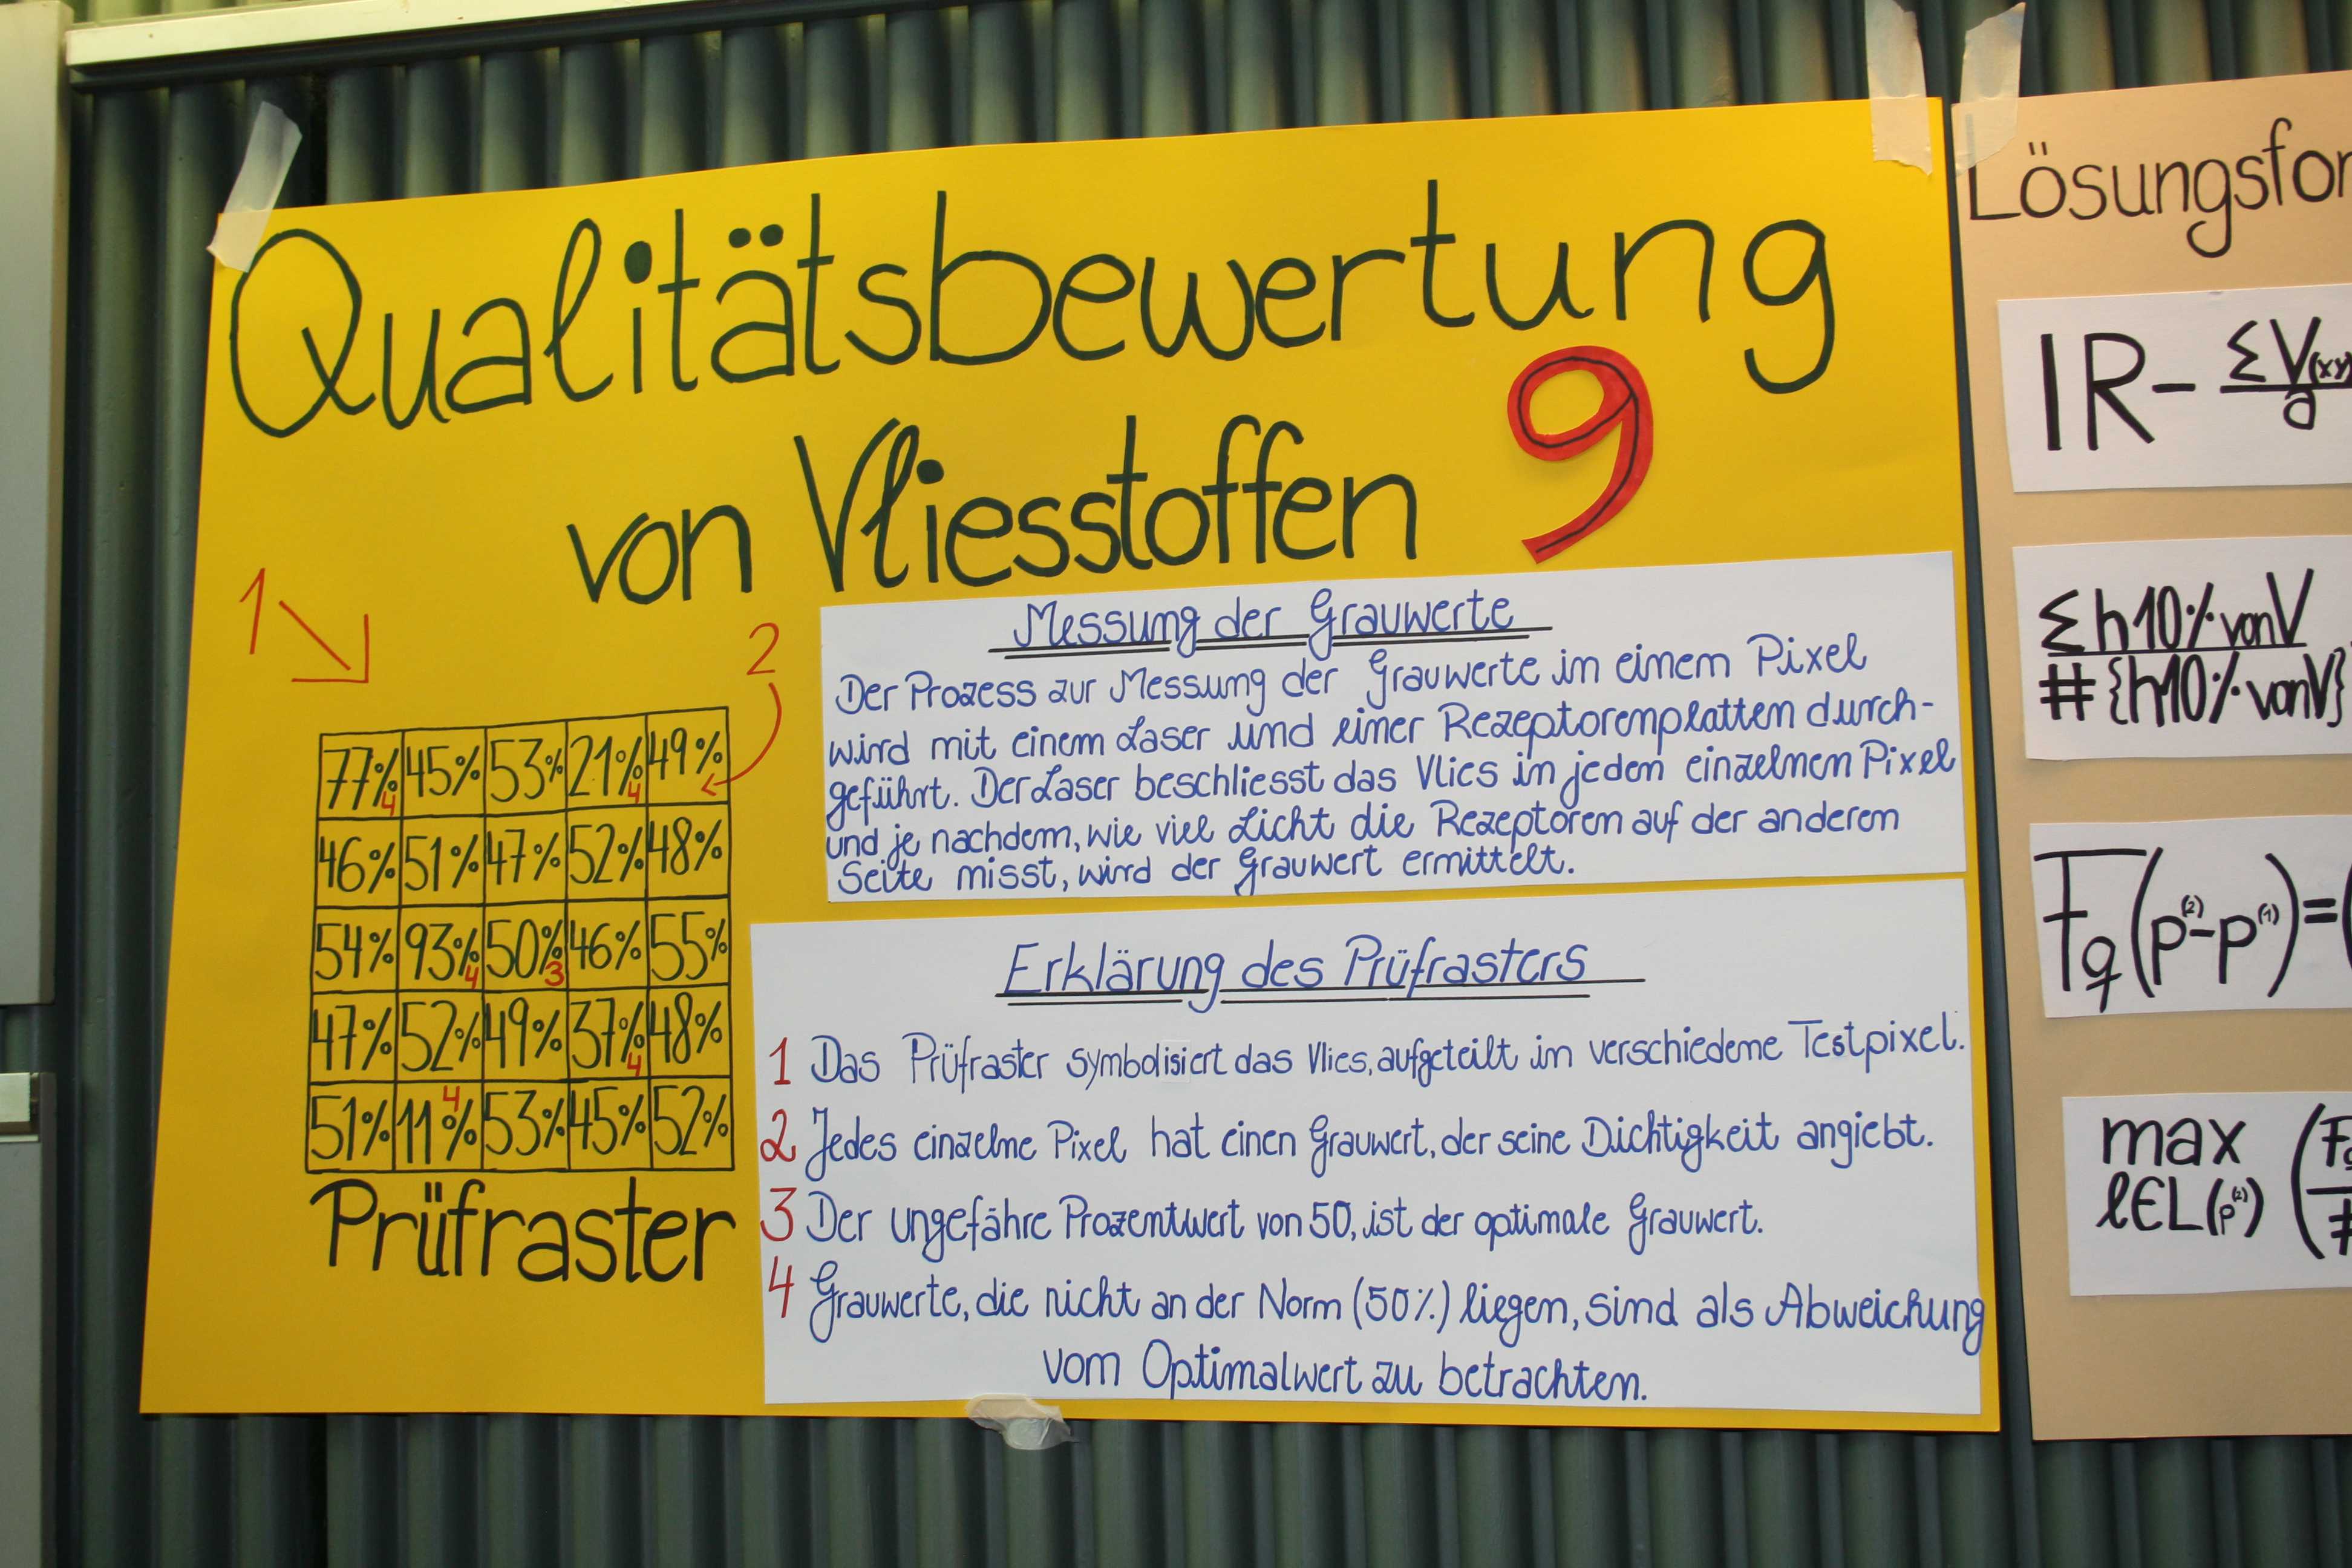 Qualitätsbewertung
von Vliesstoffen 9
1
2
77% 4 45% 53% 21% 4 49%
46% 51% 47% 52% 48%
54% 93% 4 50% 3 46% 55%
47% 52% 49% 37% 4 48%
51% 11% 4 53% 45% 52%
Prüfraster
Messung der Grauwerte
Der Prozess zur Messung der Grauwerte in einem Pixel
wird mit einem Laser und einer Rezeptorenplatten durch-
geführt. Der Laser beschliesst das Vlies in jeden einzelnen Pixel
und je nachdem, wie viel Licht die Rezeptoren auf der anderen
Seite misst, wird der Grauwert ermittelt.
Erklärung des Prüfrasters
1 Das Prüfraster symbolisiert das Vlies, aufgeteilt in verschiedene Testpixel.
2 Jedes einzelne Pixel hat einen Grauwert, der seine Dichtigkeit angiebt.
3 Der ungefähre Prozentwert von 50, ist der optimale Grauwert.
4 Grauwerte, die nicht an der Norm (50%) liegen, sind als Abweichung
vom Optimalwert zu betrachten.
Lösungsfor
IR- ΣV(xy)
a
Σh10% von V
#{h10% von V}
Fq(p(2)-p(1))=(
max
lEL(p(2))